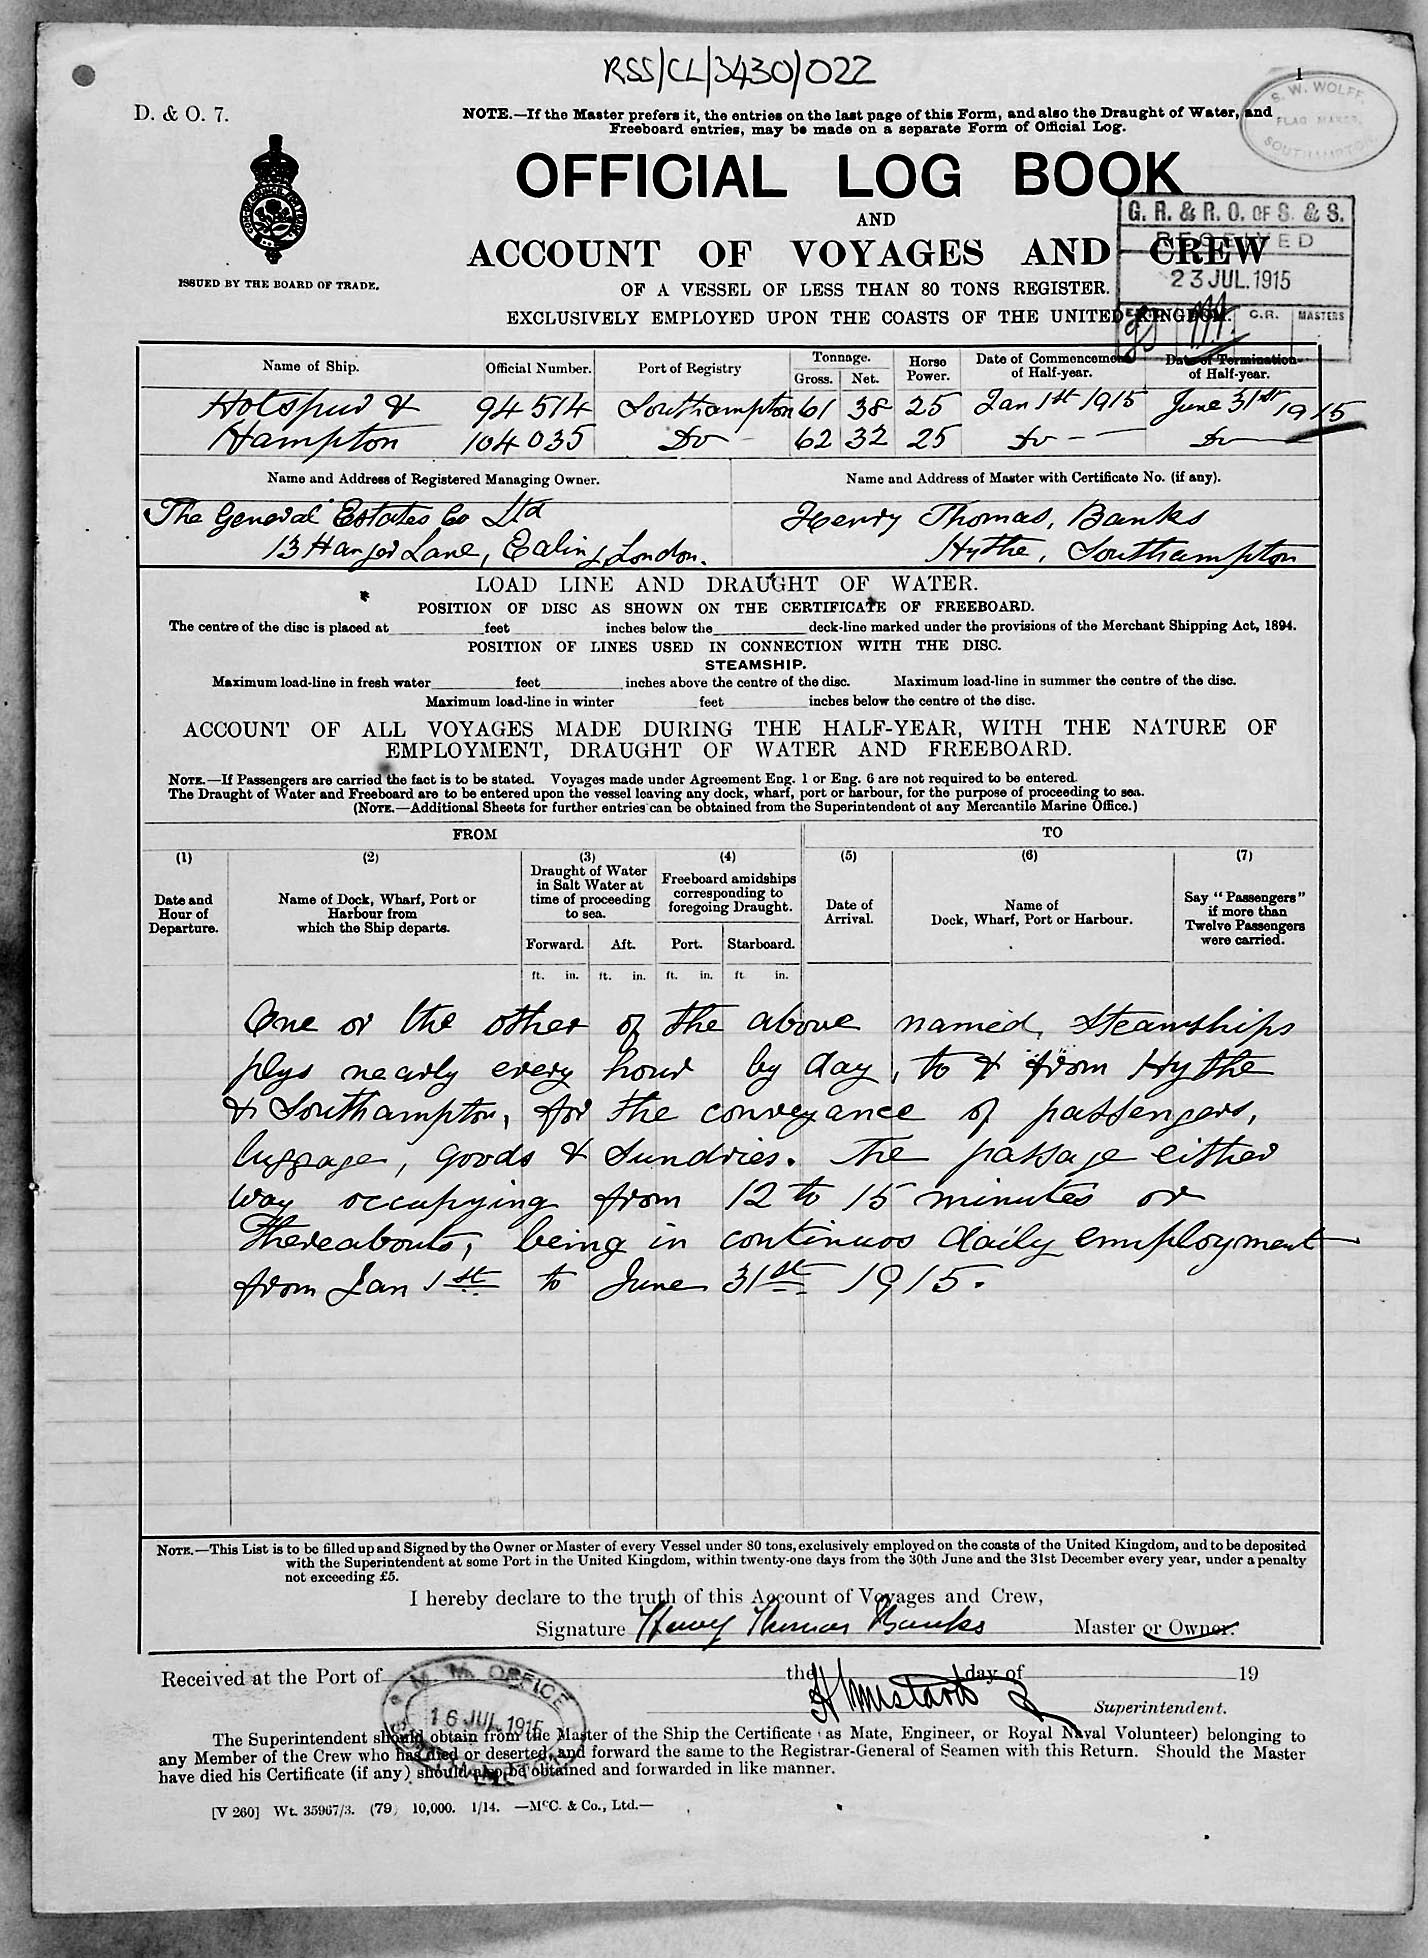 RSS/CL/3430/022
1
D. & O. 7.
NOTE.—If the Master prefers it, the entries on the last page of this Form, and also the Draught of Water, and
Freeboard entries, may be made on a separate Form of Official Log.
S. W. WOLFF,
FLAG MAKER,
SOUTHAMPTON
OFFICIAL LOG BOOK
AND
ACCOUNT OF VOYAGES AND CREW
OF A VESSEL OF LESS THAN 80 TONS REGISTER.
EXCLUSIVELY EMPLOYED UPON THE COASTS OF THE UNITED KINGDOM.
ISSUED BY THE BOARD OF TRADE.
G. R. & R. O. OF S. & S.
RECEIVED
23 JUL. 1915
C.R. MASTERS
Name of Ship. Official Number. Port of Registry Tonnage. Gross. Net. Horse Power. Date of Commencement of Half-year. Date of Termination of Half-year.
Hotspur & 94514 Southampton 61 38 25 Jan 1st 1915 June 31st 1915
Hampton 104035 Do 62 32 25 Do Do
Name and Address of Registered Managing Owner. Name and Address of Master with Certificate No. (if any).
The General Estates Co Ltd Henry Thomas, Banks
13 Hanger Lane, Ealing, London. Hythe, Southampton
LOAD LINE AND DRAUGHT OF WATER.
POSITION OF DISC AS SHOWN ON THE CERTIFICATE OF FREEBOARD.
The centre of the disc is placed at feet inches below the deck-line marked under the provisions of the Merchant Shipping Act, 1894.
POSITION OF LINES USED IN CONNECTION WITH THE DISC.
STEAMSHIP.
Maximum load-line in fresh water feet inches above the centre of the disc. Maximum load-line in summer the centre of the disc.
Maximum load-line in winter feet inches below the centre of the disc.
ACCOUNT OF ALL VOYAGES MADE DURING THE HALF-YEAR, WITH THE NATURE OF
EMPLOYMENT, DRAUGHT OF WATER AND FREEBOARD.
NOTE.—If Passengers are carried the fact is to be stated. Voyages made under Agreement Eng. 1 or Eng. 6 are not required to be entered.
The Draught of Water and Freeboard are to be entered upon the vessel leaving any dock, wharf, port or harbour, for the purpose of proceeding to sea.
(NOTE.—Additional Sheets for further entries can be obtained from the Superintendent of any Mercantile Marine Office.)
FROM TO
(1) (2) (3) (4) (5) (6) (7)
Date and Hour of Departure.
Name of Dock, Wharf, Port or Harbour from which the Ship departs.
Draught of Water in Salt Water at time of proceeding to sea.
Freeboard amidships corresponding to foregoing Draught.
Date of Arrival.
Name of Dock, Wharf, Port or Harbour.
Say "Passengers" if more than Twelve Passengers were carried.
Forward. Aft. Port. Starboard.
ft. in. ft. in. ft. in. ft in.
One or the other of the above named, steamships
plys nearly every hour by day, to & from Hythe
& Southampton, for the conveyance of passengers,
luggage, goods & sundries. The passage either
way occupying from 12 to 15 minutes or
thereabouts, being in continuos daily employment
from Jan 1st to June 31st 1915.
NOTE.—This List is to be filled up and Signed by the Owner or Master of every Vessel under 80 tons, exclusively employed on the coasts of the United Kingdom, and to be deposited
with the Superintendent at some Port in the United Kingdom, within twenty-one days from the 30th June and the 31st December every year, under a penalty
not exceeding £5.
I hereby declare to the truth of this Account of Voyages and Crew,
Signature Henry Thomas Banks Master or Owner.
Received at the Port of the day of 19
M. M. OFFICE
16 JUL. 1915
SOUTHAMPTON
Superintendent.
The Superintendent should obtain from the Master of the Ship the Certificate as Mate, Engineer, or Royal Naval Volunteer) belonging to
any Member of the Crew who has died or deserted, and forward the same to the Registrar-General of Seamen with this Return. Should the Master
have died his Certificate (if any) should also be obtained and forwarded in like manner.
[V 260] Wt. 35967/3. (79) 10,000. 1/14. —McC. & Co., Ltd.—